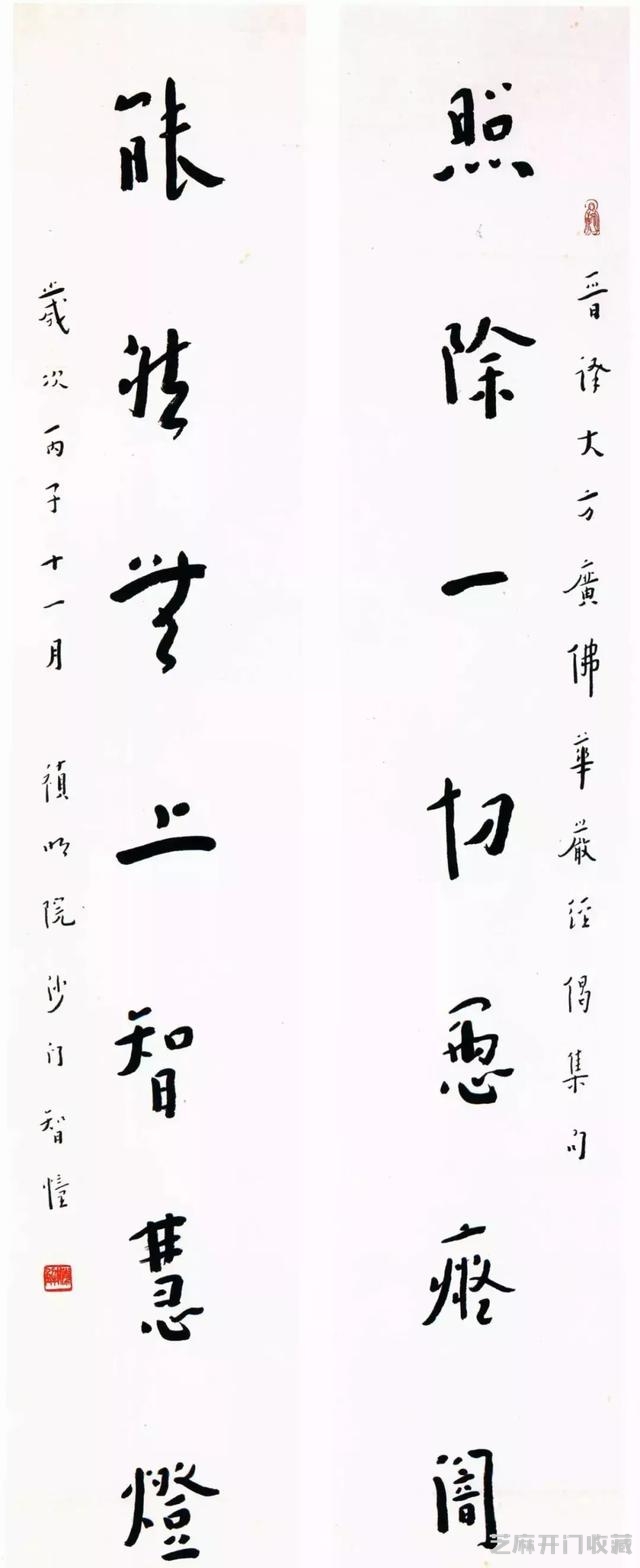 晉譯大方廣佛華嚴經偈集句
照除一切惡癡闇
能然無上智慧燈
歲次丙子十一月 禎明院沙門智幢
芝麻开门收藏